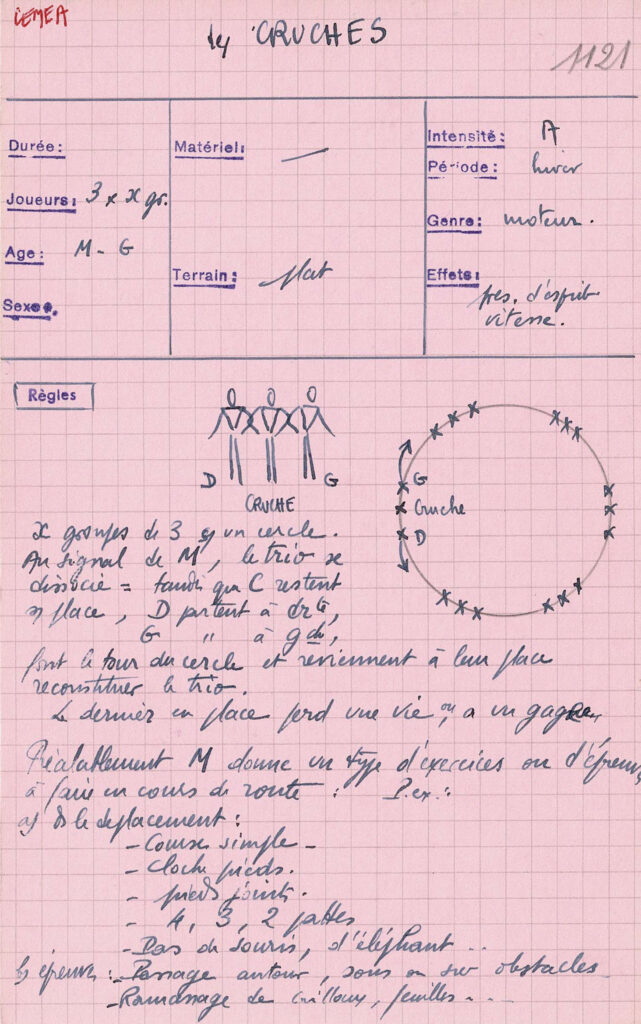 CEMEA
les CRUCHES
1121
Durée:
Joueurs: 3 x x gr.
Age: M - G
Sexe:
Matériel: —
Terrain: plat
Intensité: A
Période: hiver
Genre: moteur.
Effets: pres. d'esprit
vitesse.
Règles
D G
CRUCHE
G
Cruche
D
x groupes de 3 en un cercle.
Au signal de M, le trio se
dissocie = tandis que C restent
en place, D partent à drte,
G " à gche,
font le tour du cercle et reviennent à leur place
reconstituer le trio.
Le dernier en place perd une vie ou a un gage
Préalablement M donne un type d'exercices ou d'épreuves
à faire en cours de route : P.ex.:
a) ds le déplacement :
- Course simple -
- Cloche pieds.
- pieds joints.
- 4, 3, 2 pattes
- Pas de souris, d'éléphant ..
b) épreuves : - Passage autour, sous ou sur obstacles
- Ramassage de cailloux, feuilles - . .